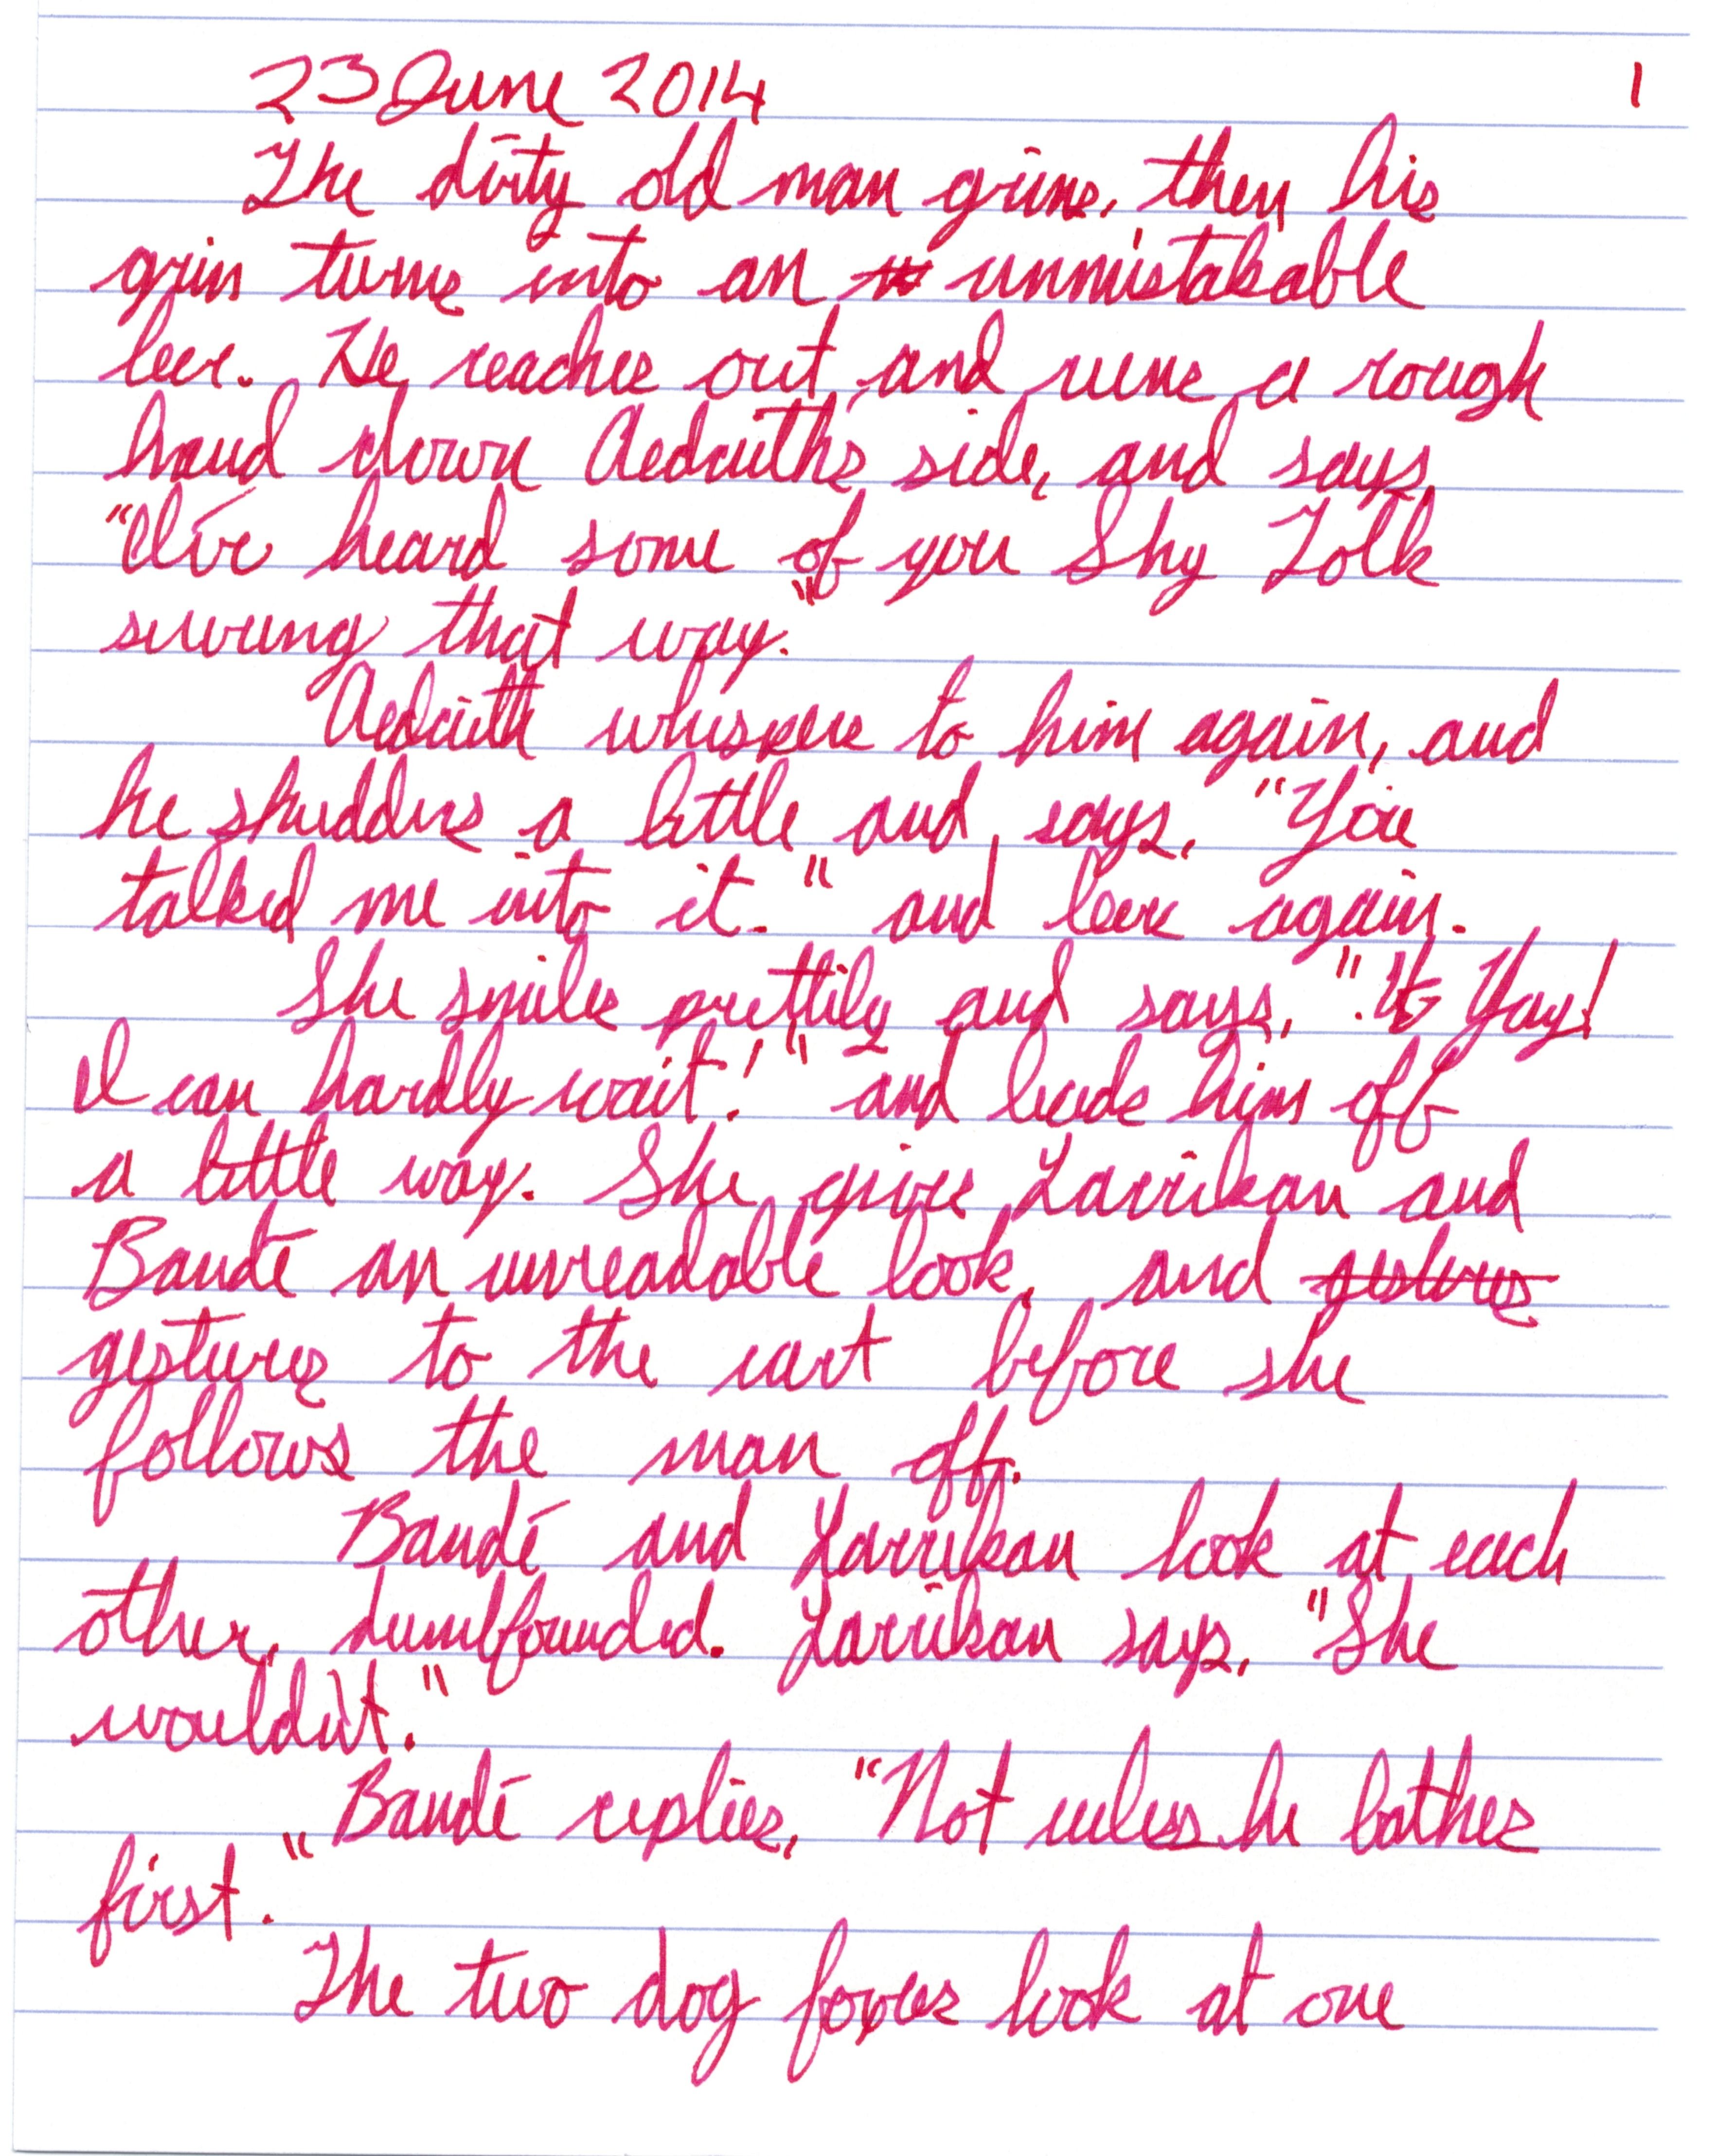 23 June 2014 1
The dirty old man grins, then his
grin turns into an unmistakable
leer. He reaches out and runs a rough
hand down Aedaith's side, and says,
"I've heard some of you Shy Folk
swung that way."
Aedaith whispers to him again, and
he shudders a little and says, "You
talked me into it." and leers again.
She smiles prettily and says, "Yay!
I can hardly wait!" and leads him off
a little way. She gives Larrikan and
Baudé an unreadable look, and gestures
gestures to the cart before she
follows the man off.
Baudé and Larrikan look at each
other, dumbfounded. Larrikan says, "She
wouldn't."
Baudé replies, "Not unless he bathes
first."
The two dog foxes look at one